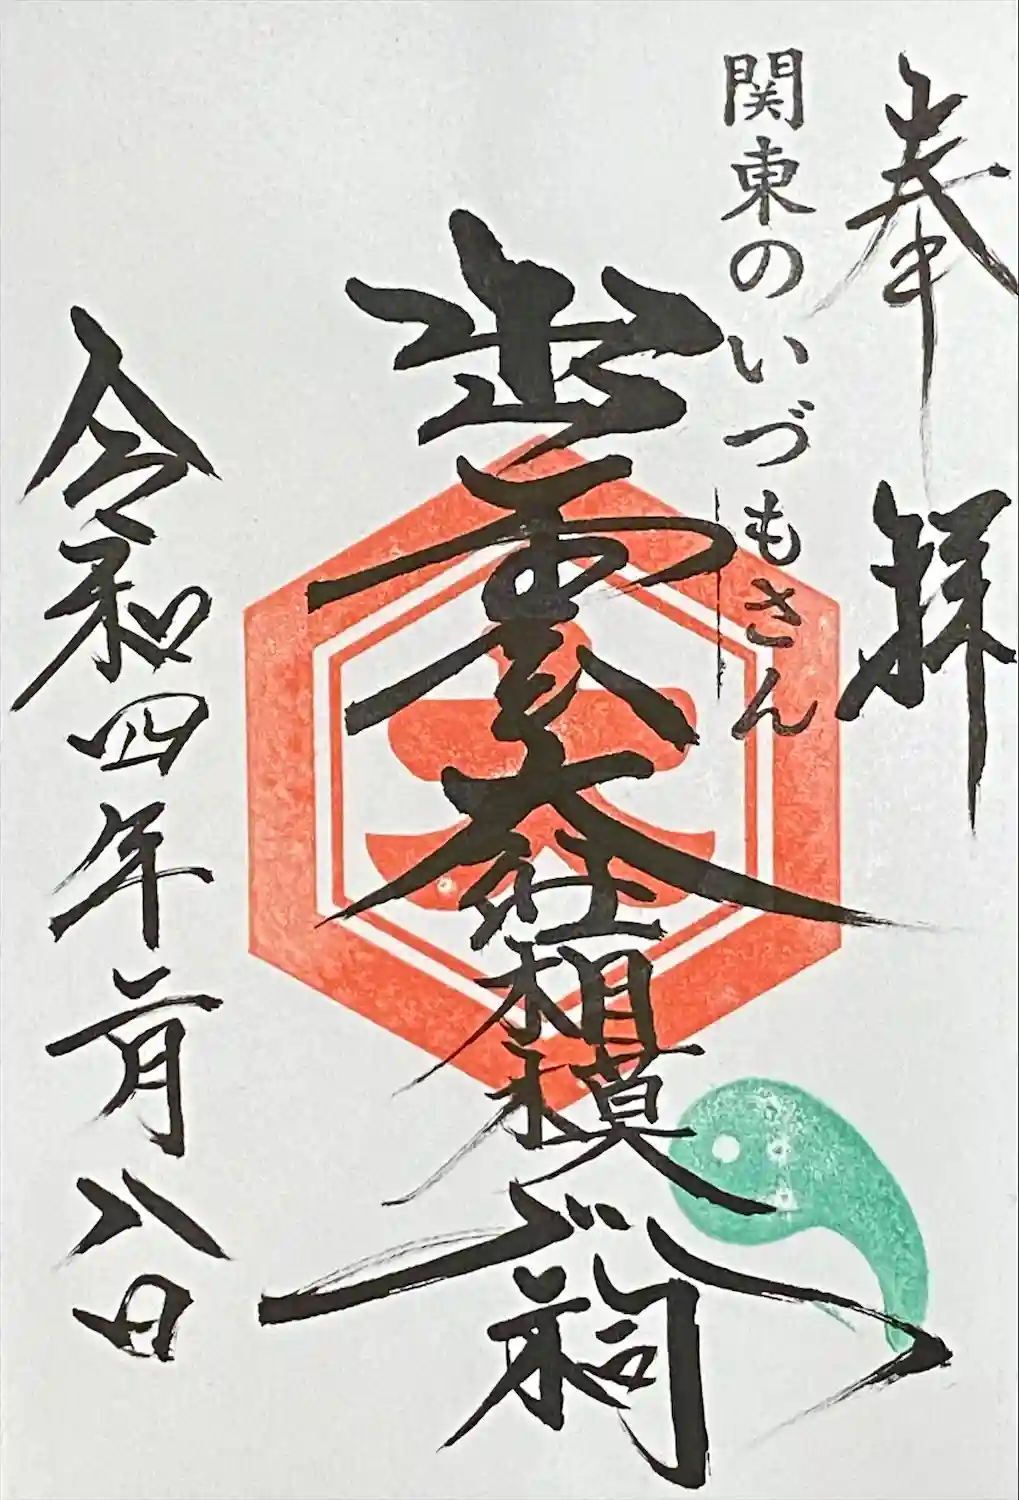 奉拝
関東のいづもさん
出雲大社相模分祠
令和四年二月八日